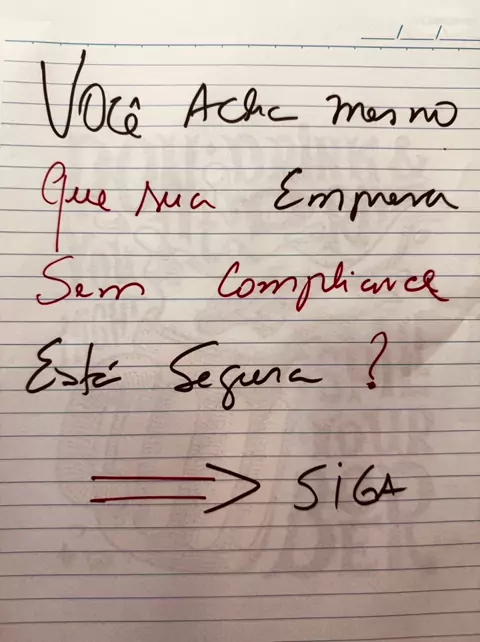 Você Acha mesmo
Que sua Empresa
Sem Compliance
Está Segura ?
⇒ SIGA